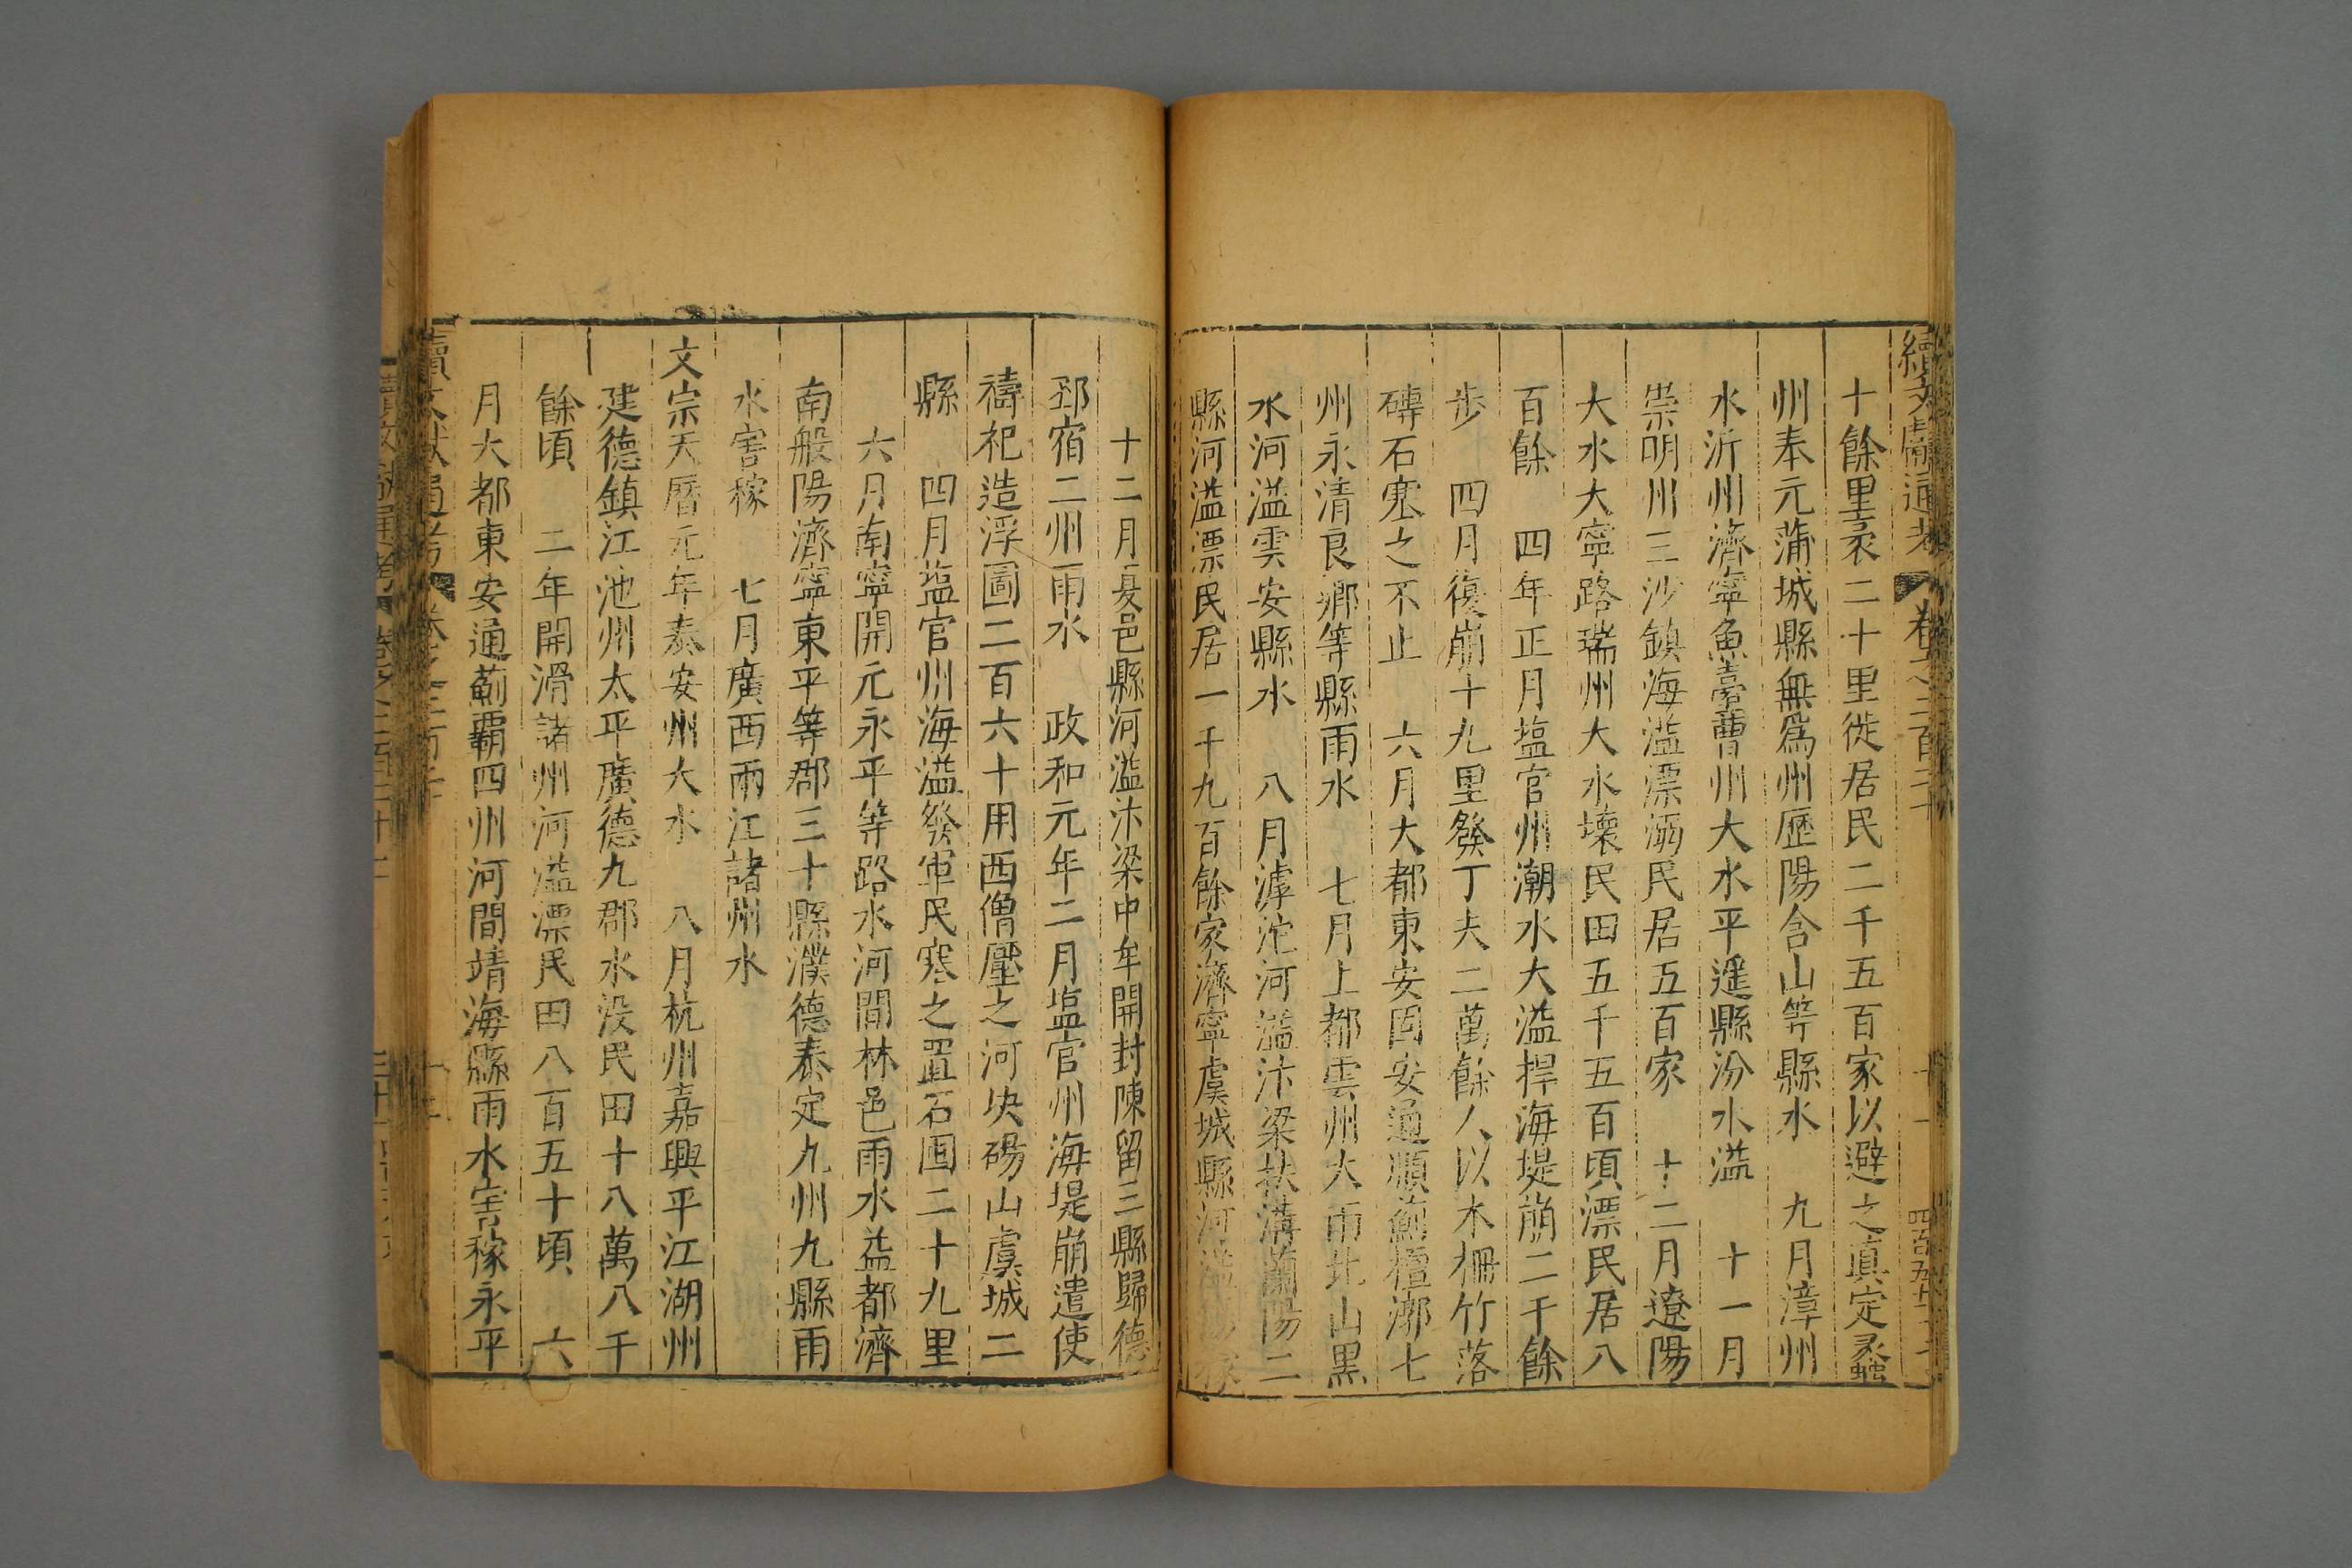 續文獻通考
卷之二百二十
四百五十二
十餘里袤二十里徙居民二千五百家以避之眞定蠡
州奉元蒲城縣無爲州歷陽含山等縣水　九月漳州
水沂州濟寧魚臺曹州大水平遥縣汾水溢　十一月
崇明州三沙鎮海溢漂溺民居五百家　十二月遼陽
大水大寧路瑞州大水壞民田五千五百頃漂民居八
百餘　四年正月塩官州潮水大溢捍海堤崩二千餘
步　四月復崩十九里發丁夫二萬餘人以木柵竹落
磚石塞之不止　六月大都東安固安通順薊檀漷七
州永清良鄉等縣雨水　七月上都雲州大雨北山黑
水河溢雲安縣水　八月滹沱河溢汴梁扶溝蘭陽二
縣河溢漂民居一千九百餘家濟寧虞城縣河溢傷稼
十二月夏邑縣河溢汴梁中牟開封陳留三縣歸德
邳宿二州雨水　政和元年二月塩官州海堤崩遣使
禱祀造浮圖二百六十用西僧壓之河决碭山虞城二
縣　四月塩官州海溢發軍民塞之置石囤二十九里
六月南寧開元永平等路水河間林邑雨水益都濟
南般陽濟寧東平等郡三十縣濮德泰定九州九縣雨
水害稼　七月廣西兩江諸州水
文宗天曆元年泰安州大水　八月杭州嘉興平江湖州
建德鎮江池州太平廣德九郡水没民田十八萬八千
餘頃　二年開滑諸州河溢漂民田八百五十頃　六
月大都東安通薊霸四州河間靖海縣雨水害稼永平